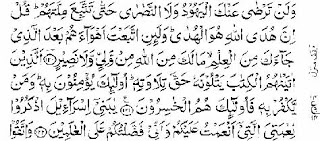 وَلَنْ تَرْضٰى عَنْكَ الْيَهُوْدُ وَلَا النَّصٰرٰى حَتّٰى تَتَّبِعَ مِلَّتَهُمْ ؕ قُلْ
اِنَّ هُدَى اللّٰهِ هُوَ الْهُدٰى ؕ وَلَئِنِ اتَّبَعْتَ اَهْوَآءَهُمْ بَعْدَ الَّذِىْ
جَآءَكَ مِنَ الْعِلْمِ ۙ مَا لَكَ مِنَ اللّٰهِ مِنْ وَّلِىٍّ وَّلَا نَصِيْرٍ ﴿۱۲۰﴾ اَلَّذِيْنَ
اٰتَيْنٰهُمُ الْكِتٰبَ يَتْلُوْنَهٗ حَقَّ تِلَاوَتِهٖ ؕ اُولٰٓئِكَ يُؤْمِنُوْنَ بِهٖ ؕ وَمَنْ
يَّكْفُرْ بِهٖ فَاُولٰٓئِكَ هُمُ الْخٰسِرُوْنَ ﴿۱۲۱﴾ يٰبَنِىْٓ اِسْرَآءِيْلَ اذْكُرُوْا
نِعْمَتِىَ الَّتِىْٓ اَنْعَمْتُ عَلَيْكُمْ وَاَنِّىْ فَضَّلْتُكُمْ عَلَى الْعٰلَمِيْنَ ﴿۱۲۲﴾ وَاتَّقُوْا